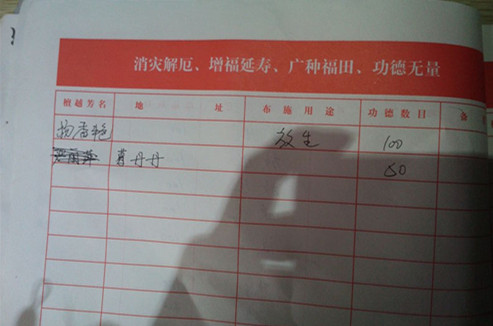 消灾解厄、增福延寿、广种福田、功德无量
檀越芳名 地 址 布施用途 功德数目 备
香艳 放生 100
肖丹丹 50